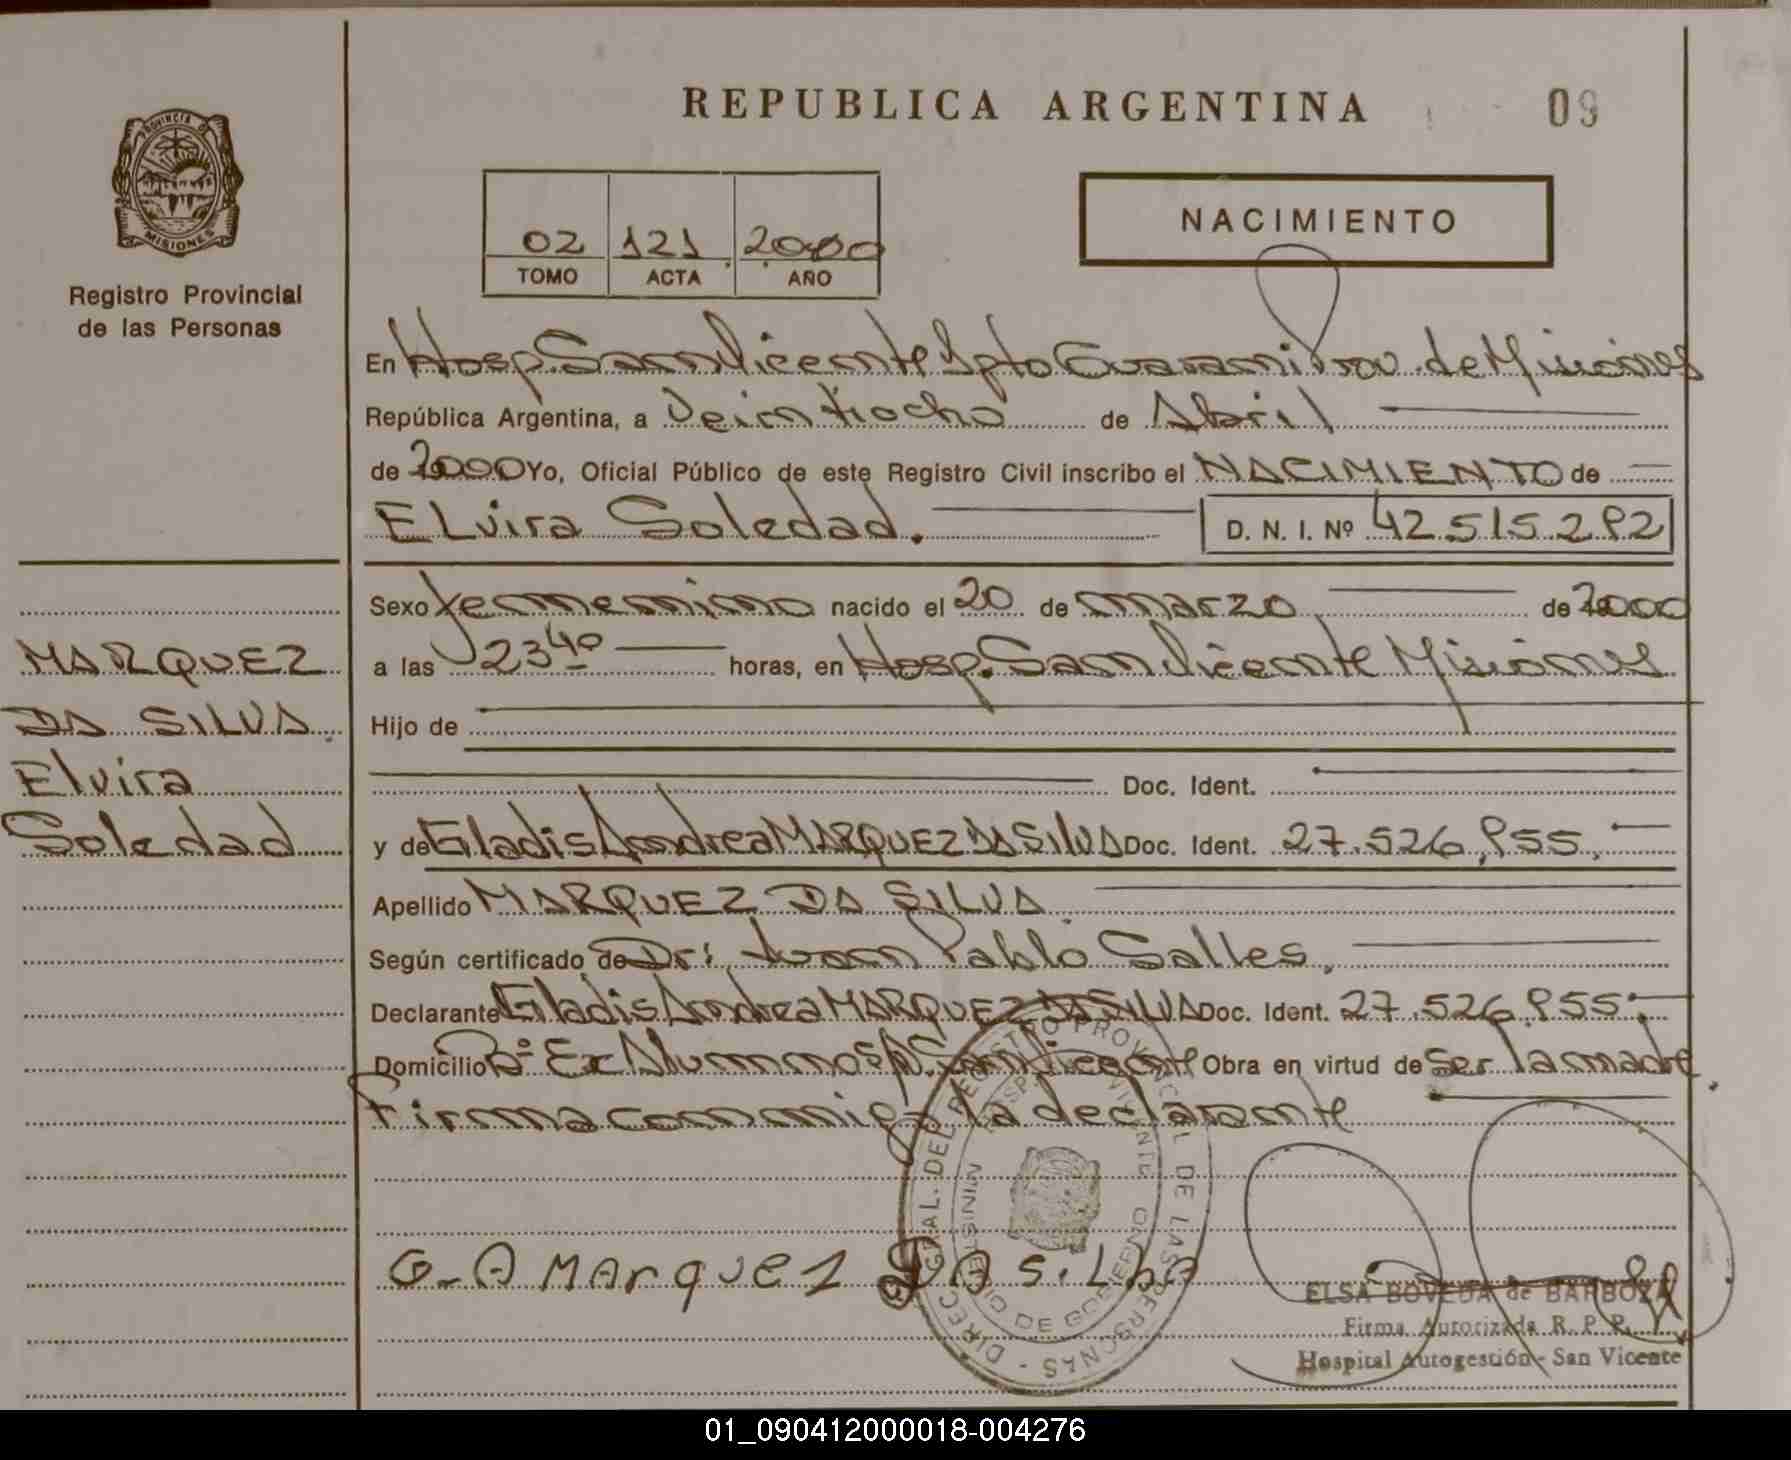 REPUBLICA ARGENTINA
09
PROVINCIA DE
MISIONES
Registro Provincial
de las Personas
02 121 2000
TOMO ACTA AÑO
NACIMIENTO
En Hosp. San Vicente Dpto Guarani Prov. de Misiones
República Argentina, a Veintiocho de Abril
de 2000 Yo, Oficial Público de este Registro Civil inscribo el NACIMIENTO de
ELvira Soledad.
D. N. I. Nº 42.515.292
Sexo femenino nacido el 20 de marzo de 2000
a las 23 40 horas, en Hosp. San Vicente Misiones
Hijo de
Doc. Ident.
y de Gladis Andrea MARQUEZ DA SILVA Doc. Ident. 27.526.955.
Apellido MARQUEZ DA SILVA
Según certificado de Dr: Juan Pablo Salles.
Declarante Gladis Andrea MARQUEZ DA SILVA Doc. Ident. 27.526.955.
Domicilio Bº Ex Alumnos San Vicente Obra en virtud de ser la madre.
Firma conmigo la declarante
MARQUEZ
DA SILVA.
Elvira
Soledad
G-A MArquez DA SiLbA
DIRECC. GRAL. DEL REGISTRO PROVINCIAL DE LAS PERSONAS
HOSP. VICENTE
MINISTERIO DE GOBIERNO
ELSA BOVEDA de BARBOZA
Firma Autorizada R. P. P.
Hospital Autogestión - San Vicente
01_090412000018-004276